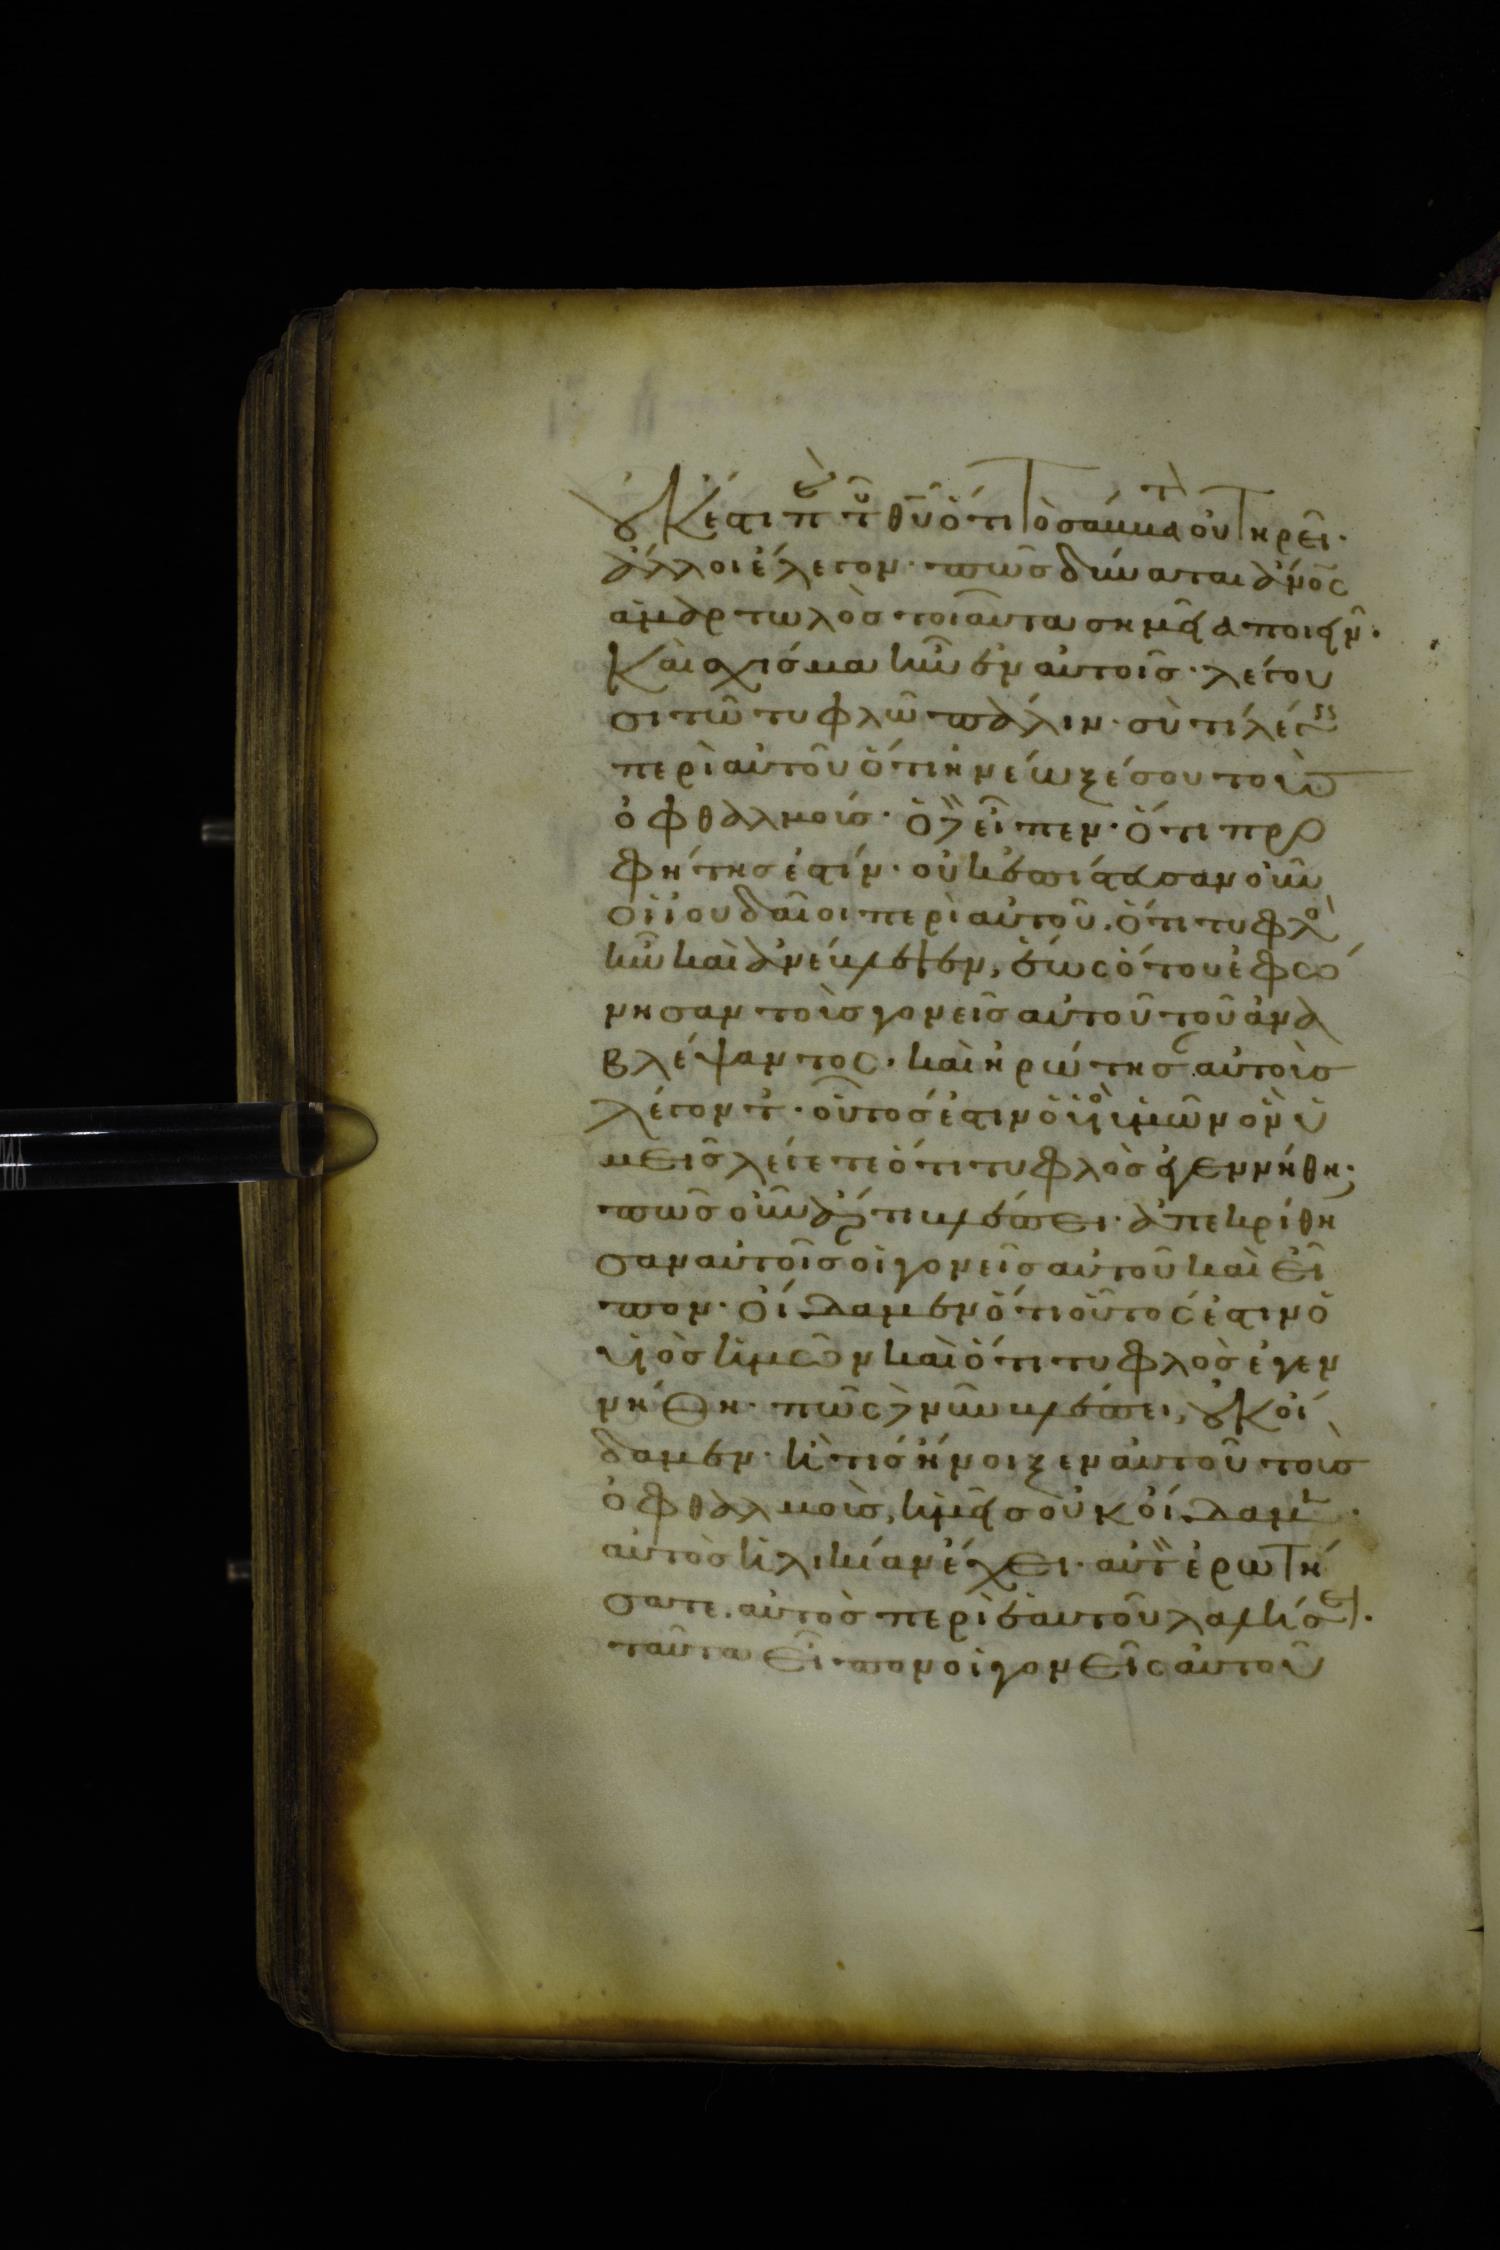 οὐκ ἔστι παρὰ τοῦ θῦ ὅτι τὸ σάββατον οὐ τηρεῖ·
ἄλλοι ἔλεγον· πῶς δύναται ἄνος
ἁμαρτωλὸς τοιαῦτα σημεῖα ποιεῖν·
Καὶ σχίσμα ἦν ἐν αὐτοῖς· λέγου
σι τῶ τυφλῶ πάλιν· σὺ τί λέγεις
περὶ αὐτοῦ ὅτι ἠνέωξέ σου τοὺς
ὀφθαλμούς· ὁ δὲ εἶπεν· ὅτι προ
φήτης ἐστίν· οὐκ ἐπίστευσαν οὖν
οἱ ἰουδαῖοι περὶ αὐτοῦ. ὅτι τυφλὸς
ἦν καὶ ἀνέβλεψεν, ἕως ὅτου ἐφώ
νησαν τοὺς γονεῖς αὐτοῦ τοῦ ἀνα
βλέψαντος· καὶ ἠρώτησαν αὐτοὺς
λέγοντες· οὗτός ἐστιν ὁ υἱὸς ὑμῶν ὃν ὑ
μεῖς λέγετε ὅτι τυφλὸς ἐγεννήθη;
πῶς οὖν ἄρτι βλέπει· ἀπεκρίθη
σαν αὐτοῖς οἱ γονεῖς αὐτοῦ καὶ εἶ
πον· οἴδαμεν ὅτι οὗτός ἐστιν ὁ
υἱὸς ἡμῶν καὶ ὅτι τυφλὸς ἐγεν
νήθη· πῶς δὲ νῦν βλέπει, οὐκ οἴ
δαμεν· ἢ τίς ἤνοιξεν αὐτοῦ τοὺς
ὀφθαλμοὺς, ἡμεῖς οὐκ οἴδαμεν·
αὐτὸς ἡλικίαν ἔχει· αὐτὸν ἐρωτή
σατε. αὐτὸς περὶ ἑαυτοῦ λαλήσει.
ταῦτα εἶπον οἱ γονεῖς αὐτοῦ